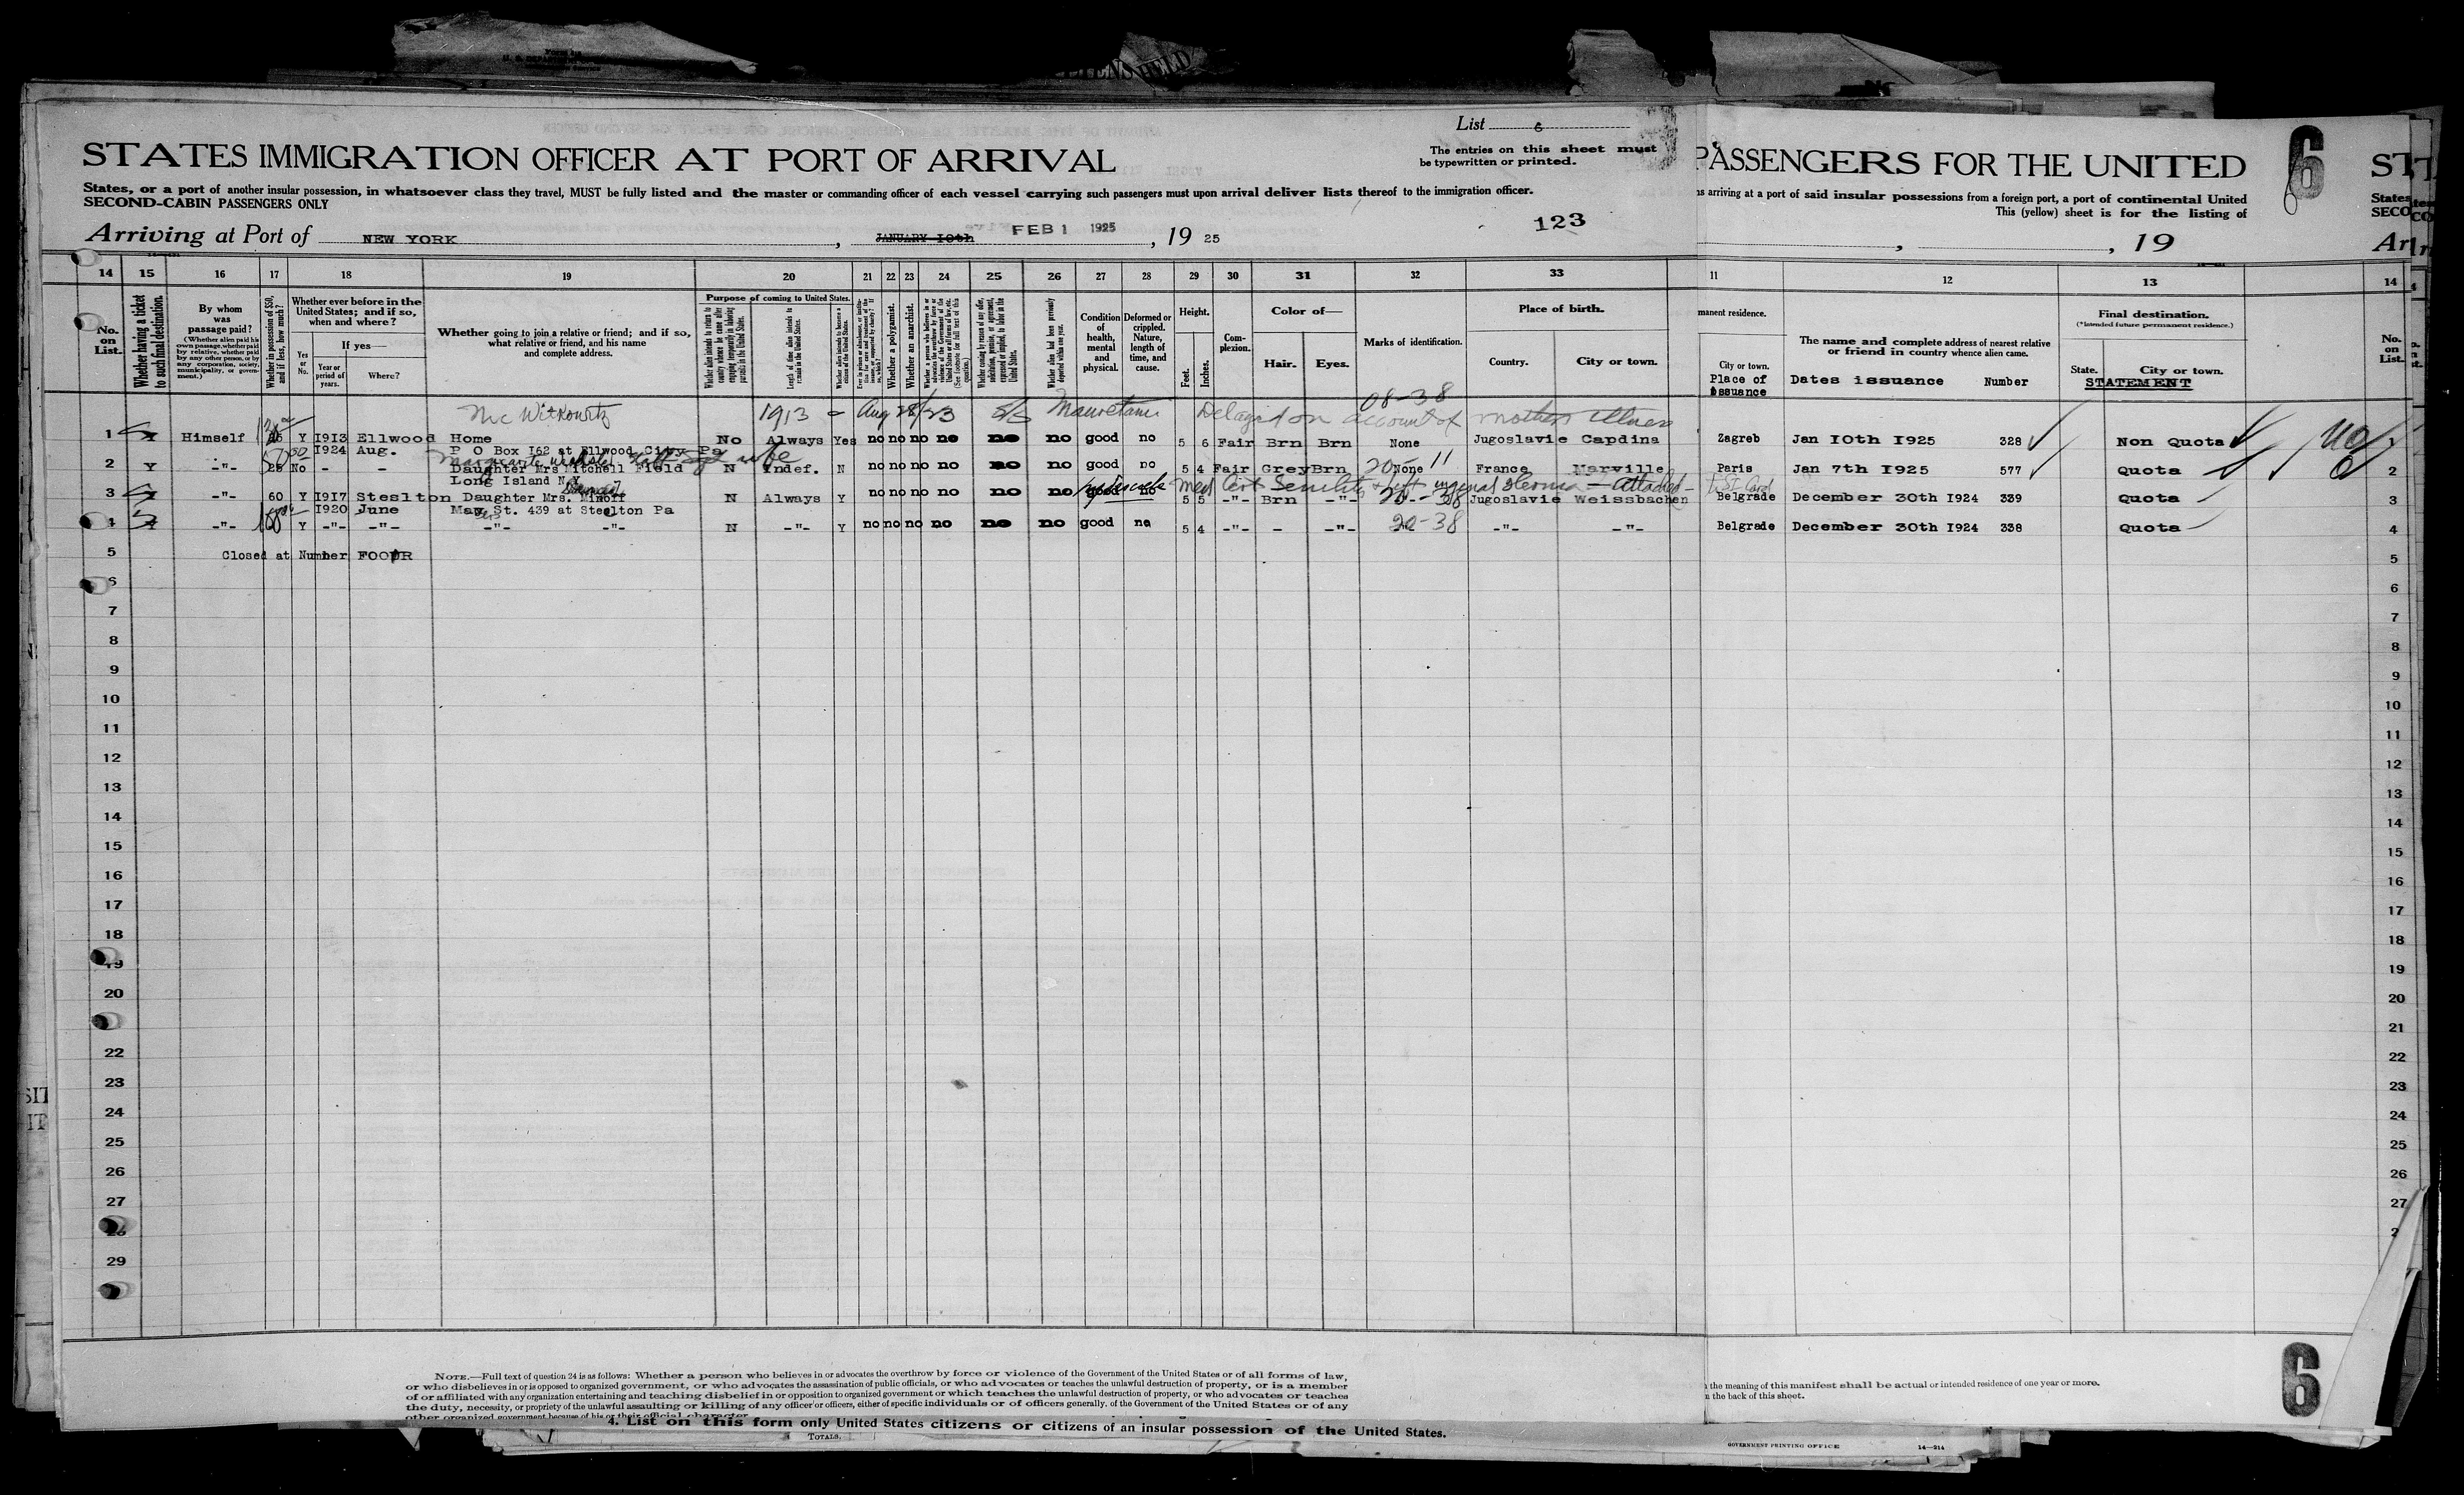 List 6
The entries on this sheet must
be typewritten or printed.
STATES IMMIGRATION OFFICER AT PORT OF ARRIVAL
PASSENGERS FOR THE UNITED
6
States, or a port of another insular possession, in whatsoever class they travel, MUST be fully listed and the master or commanding officer of each vessel carrying such passengers must upon arrival deliver lists thereof to the immigration officer.
SECOND-CABIN PASSENGERS ONLY
arriving at a port of said insular possessions from a foreign port, a port of continental United
This (yellow) sheet is for the listing of
States
SECO
Arriving at Port of NEW YORK, JANUARY 10th FEB 1 1925, 19 25
123
, , 19
14 15 16 17 18 19 20 21 22 23 24 25 26 27 28 29 30 31 32 33 11 12 13 14
No. on List.
Whether having a ticket to such final destination.
By whom was passage paid?
(Whether alien paid his own passage, whether paid by relative, whether paid by any other person, or by any corporation, society, municipality, or government.)
Whether in possession of $50, and if less, how much?
Whether ever before in the United States; and if so, when and where?
Yes or No.
If yes—
Year or period of years.
Where?
Whether going to join a relative or friend; and if so, what relative or friend, and his name and complete address.
Purpose of coming to United States.
Whether alien intends to return to country whence he came after engaging temporarily in laboring pursuits in the United States.
Length of time alien intends to remain in the United States.
Whether alien intends to become a citizen of the United States.
Whether a polygamist.
Whether an anarchist.
Whether alien had been previously deported within one year.
Condition of health, mental and physical.
Deformed or crippled. Nature, length of time, and cause.
Height.
Feet.
Inches.
Complexion.
Color of—
Hair.
Eyes.
Marks of identification.
Place of birth.
Country.
City or town.
manent residence.
City or town.
Place of Issuance
The name and complete address of nearest relative or friend in country whence alien came.
Dates issuance Number
Final destination.
(*Intended future permanent residence.)
State.
City or town.
STATEMENT
No. on List.
Mc Witkowitz 1913 - Aug 28/23 S/S Mauretania Delayed on account of mothers illness 08-38
1 Himself Y 1913 Ellwood Home No Always Yes no no no no no no good no 5 6 Fair Brn Brn None Jugoslavie Capdina Zagreb Jan 10th 1925 328 Non Quota 1
1924 Aug. P O Box 162 at Ellwood City Pa
2 Y -"- 25 No - - Daughter Mrs Mitchell Field N Indef. N no no no no no no good no 5 4 Fair Grey Brn None France Marville Paris Jan 7th 1925 577 Quota 2
Long Island N.Y.
Med Cert Senility & left inguinal Hernia - attached
3 -"- 60 Y 1917 Steelton Daughter Mrs. Minoff N Always Y no no no no no no good no 5 5 -"- Brn -"- 20-38 Jugoslavie Weissbachen Belgrade December 30th 1924 339 Quota 3
1920 June St. 439 at Steelton Pa
4 -"- Y -"- -"- -"- -"- N -"- Y no no no no no no good no 5 4 -"- - -"- 20-38 -"- -"- Belgrade December 30th 1924 338 Quota 4
5 Closed at Number FOOUR 5
6 6
7 7
8 8
9 9
10 10
11 11
12 12
13 13
14 14
15 15
16 16
17 17
18 18
19 19
20 20
21
22 22
23 23
24 24
25 25
26 26
27 27
28
29
NOTE.—Full text of question 24 is as follows: Whether a person who believes in or advocates the overthrow by force or violence of the Government of the United States or of all forms of law,
or who disbelieves in or is opposed to organized government, or who advocates the assassination of public officials, or who advocates or teaches the unlawful destruction of property, or is a member
of or affiliated with any organization entertaining and teaching disbelief in or opposition to organized government or which teaches the unlawful destruction of property, or who advocates or teaches
the duty, necessity, or propriety of the unlawful assaulting or killing of any officer or officers, either of specific individuals or of officers generally, of the Government of the United States or of any
other organized government because of his or their official character.
the meaning of this manifest shall be actual or intended residence of one year or more.
the back of this sheet.
6
4. List on this form only United States citizens or citizens of an insular possession of the United States.
TOTALS.
GOVERNMENT PRINTING OFFICE 14—214